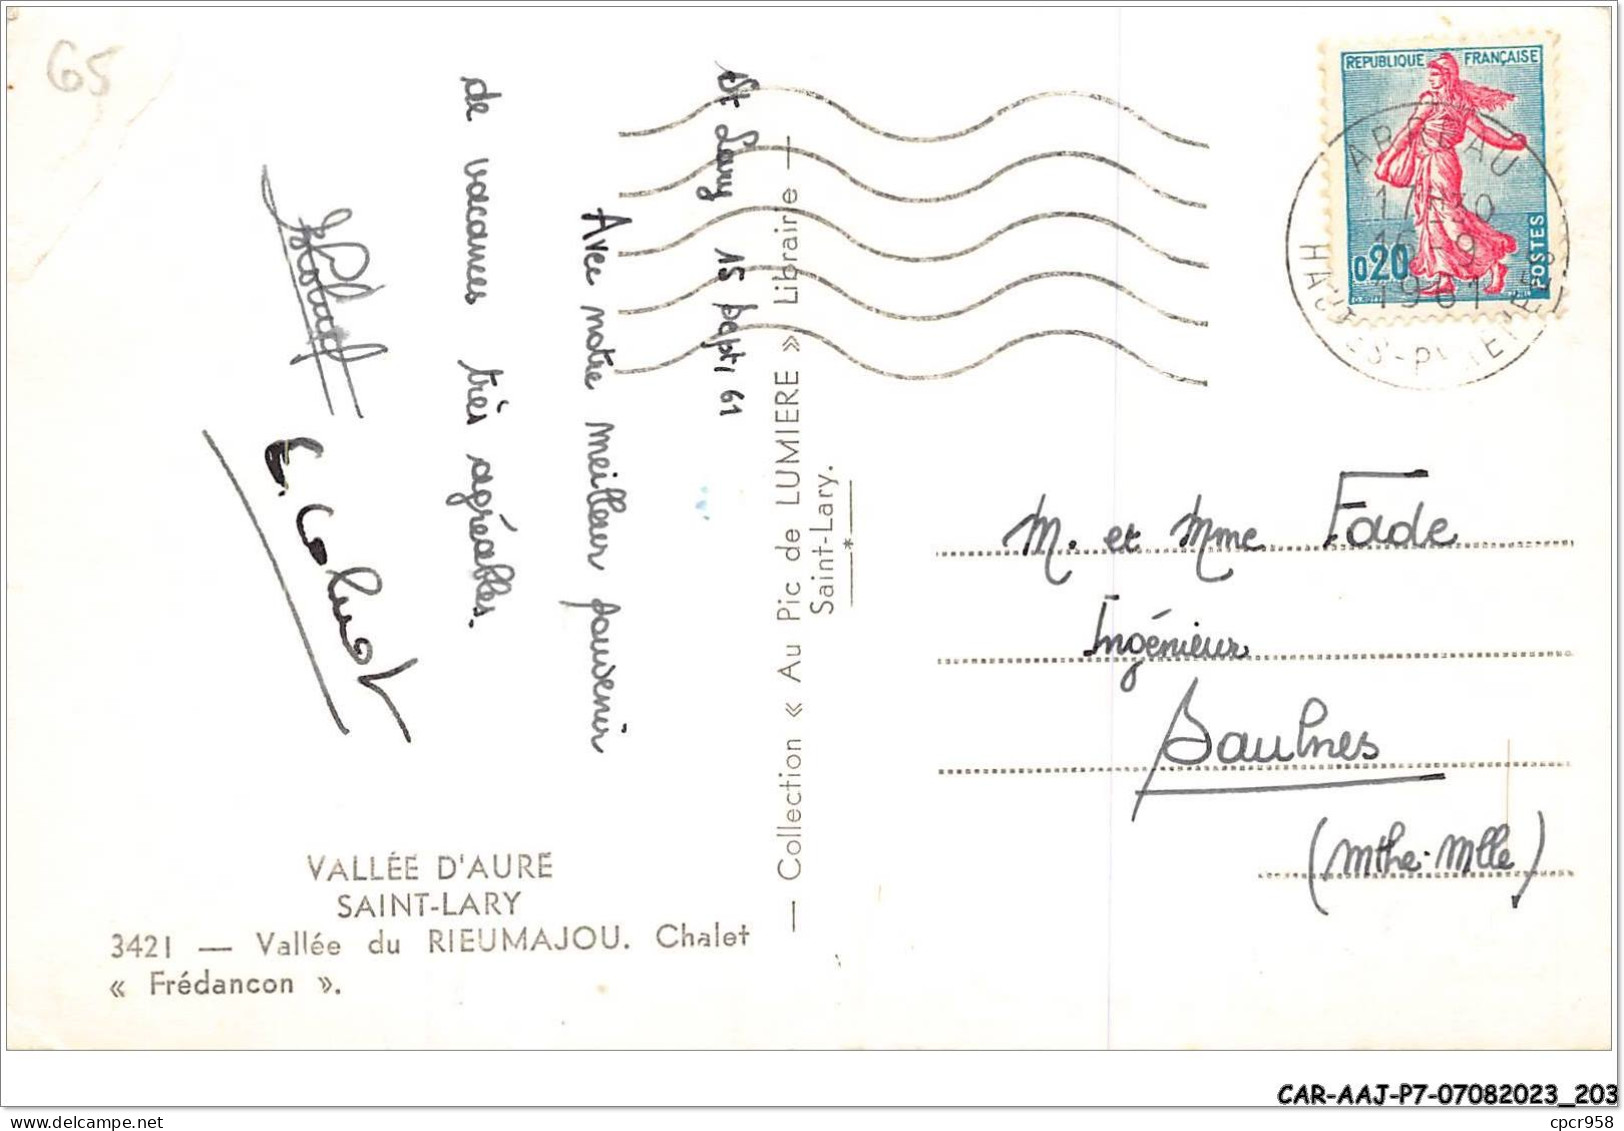 65
St Lary 15 Sept, 61
Avec notre meilleur souvenir
de vacances très agréables.
VALLÉE D'AURE
SAINT-LARY
3421 — Vallée du RIEUMAJOU. Chalet
« Frédancon ».
— Collection « Au Pic de LUMIERE » Libraire —
Saint-Lary.
*
REPUBLIQUE FRANÇAISE
0,20
POSTES
ARREAU
17-30
16-9
1961
HAUTES-PYRENEES
M. et Mme Fade
Ingénieur
Saulnes
(Mthe-Mlle)
CAR-AAJ-P7-07082023_203
cpcr958